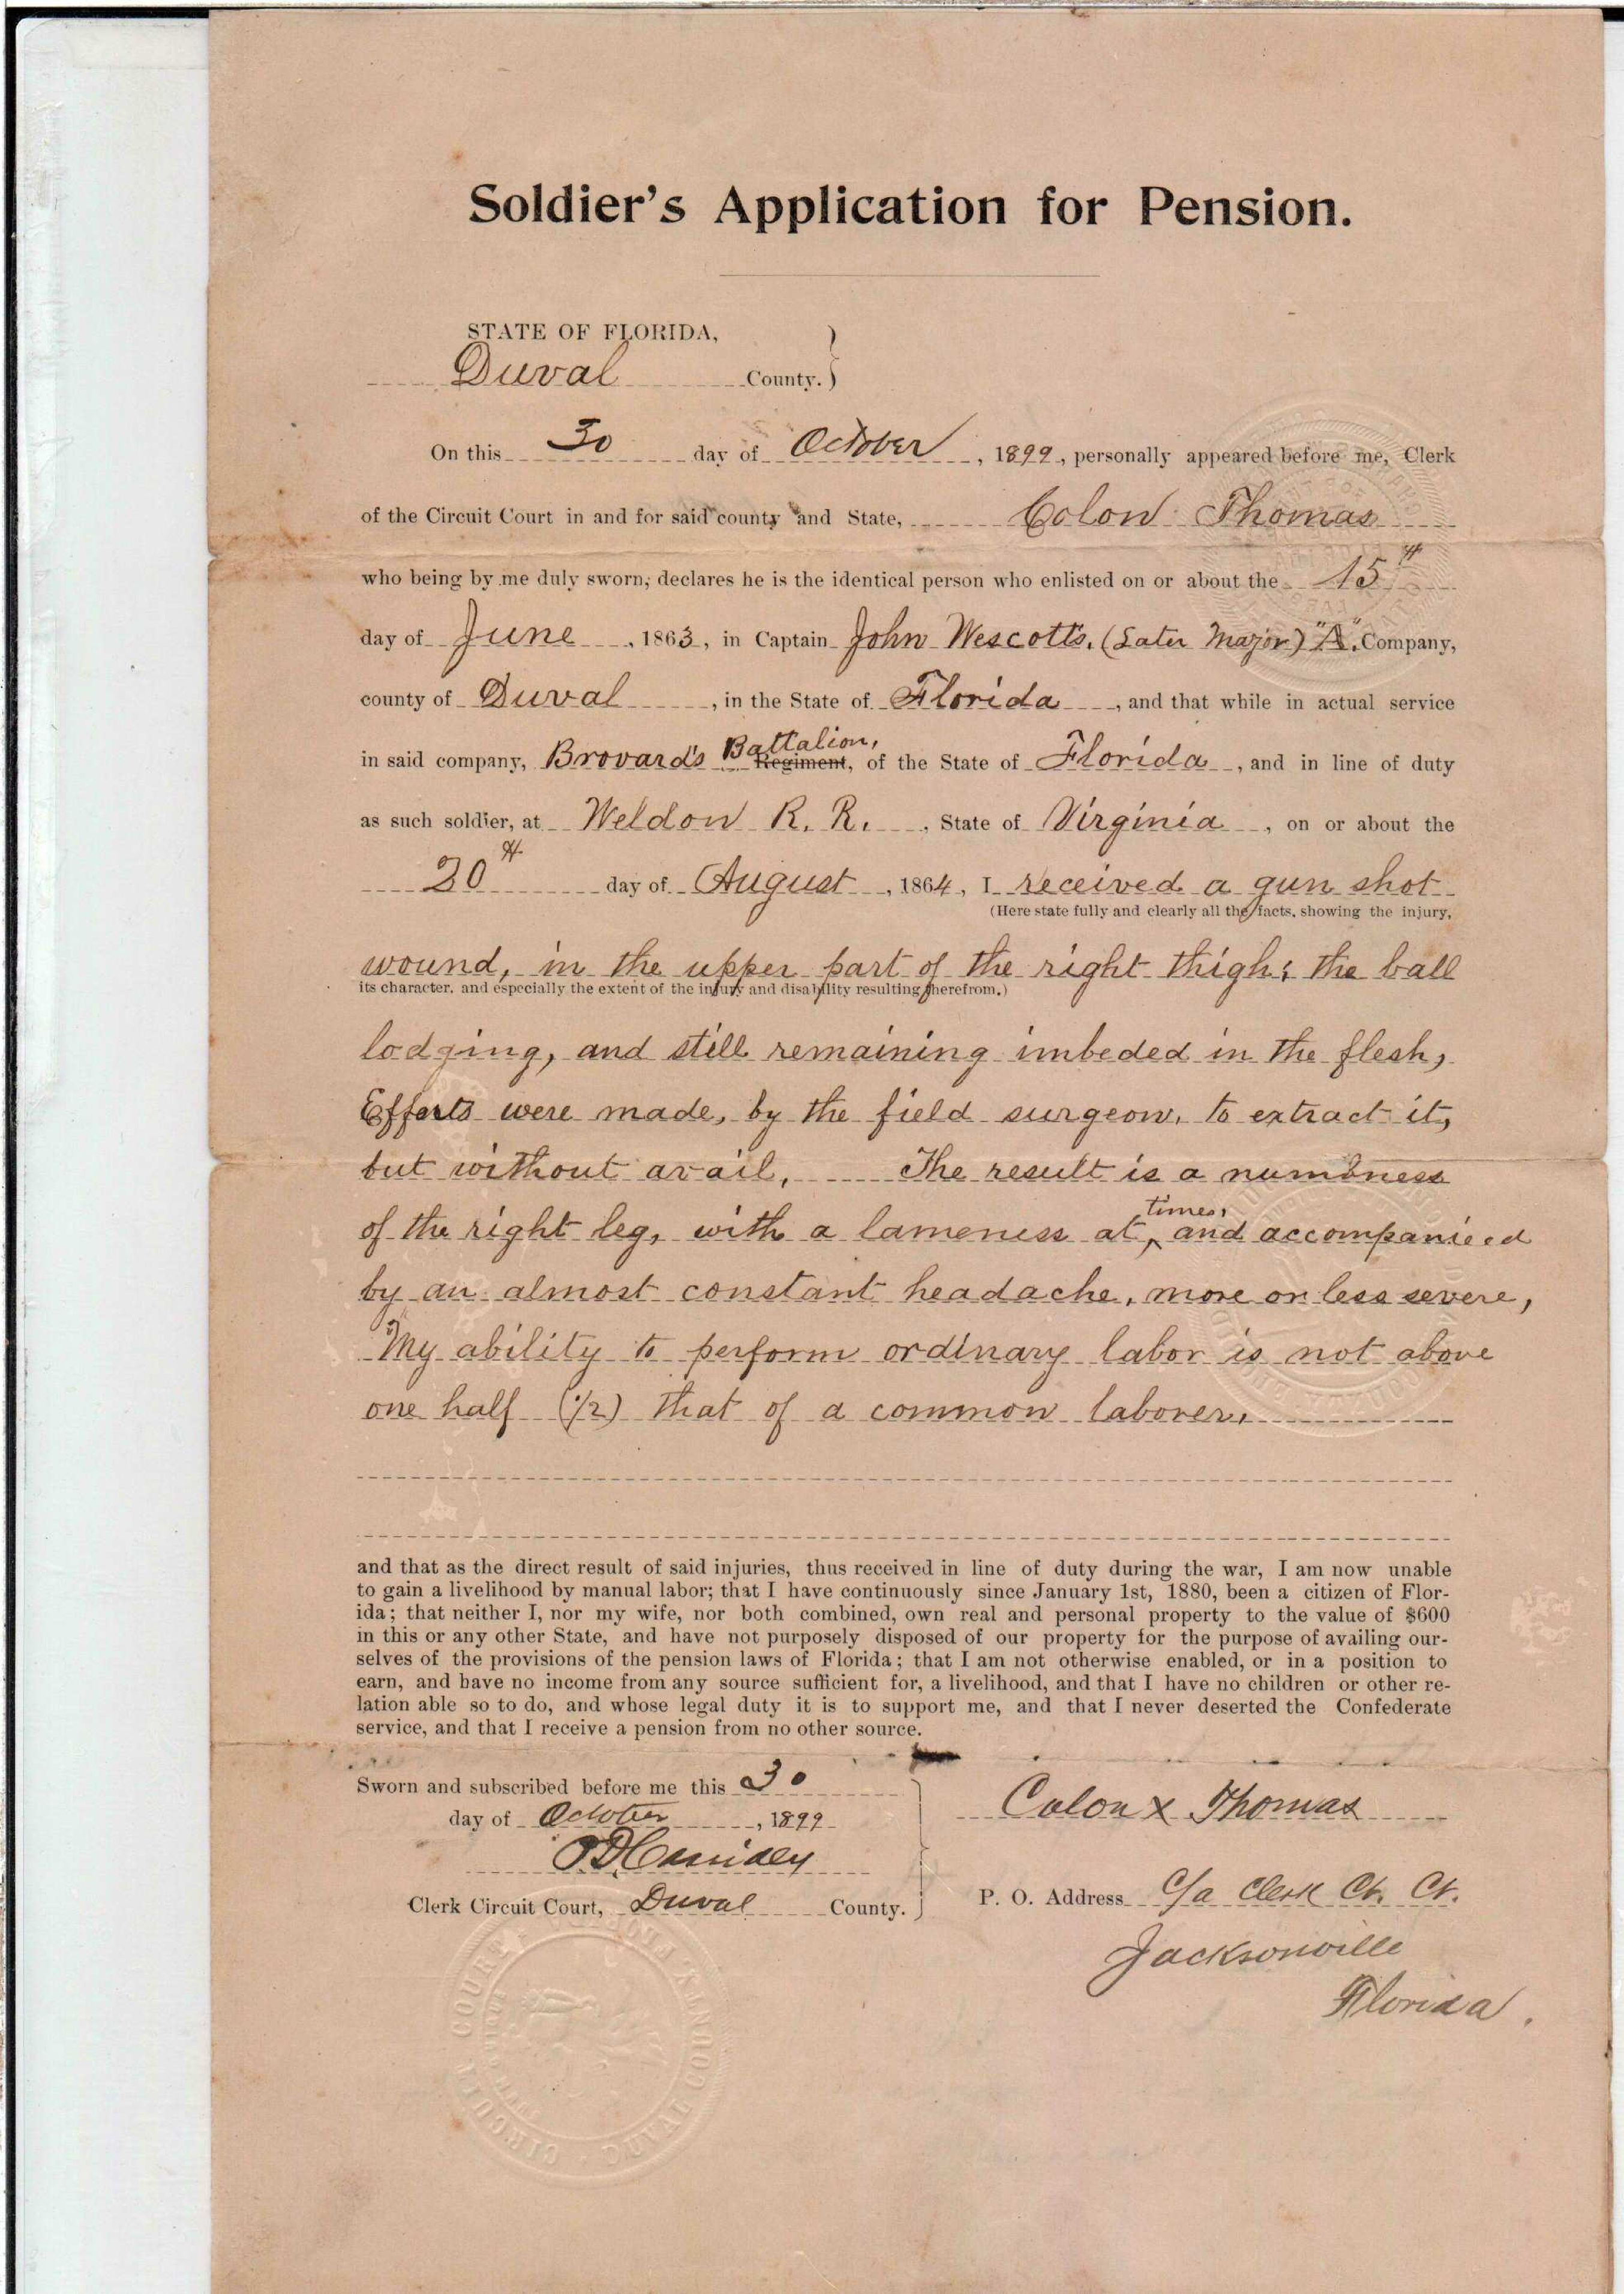 Soldier's Application for Pension.
STATE OF FLORIDA,
Duval County. }
On this 30 day of October, 1899, personally appeared before me, Clerk
of the Circuit Court in and for said county and State, Colon Thomas
who being by me duly sworn, declares he is the identical person who enlisted on or about the 15th
day of June, 1863, in Captain John Wescott's, (Later Major) "A". Company,
county of Duval, in the State of Florida, and that while in actual service
in said company, Brovard's Battalion, Regiment, of the State of Florida, and in line of duty
as such soldier, at Weldon R. R., State of Virginia, on or about the
20th day of August, 1864, I received a gun shot
(Here state fully and clearly all the facts, showing the injury,
wound, in the upper part of the right thigh; the ball
its character, and especially the extent of the injury and disability resulting therefrom.)
lodging, and still remaining imbeded in the flesh,
Efforts were made, by the field surgeon, to extract it,
but without avail, The result is a numbness
of the right leg, with a lameness at times, and accompanieed
by an almost constant headache, more or less severe,
My ability to perform ordinary labor is not above
one half (1/2) that of a common laborer.
and that as the direct result of said injuries, thus received in line of duty during the war, I am now unable
to gain a livelihood by manual labor; that I have continuously since January 1st, 1880, been a citizen of Flor-
ida; that neither I, nor my wife, nor both combined, own real and personal property to the value of $600
in this or any other State, and have not purposely disposed of our property for the purpose of availing our-
selves of the provisions of the pension laws of Florida; that I am not otherwise enabled, or in a position to
earn, and have no income from any source sufficient for, a livelihood, and that I have no children or other re-
lation able so to do, and whose legal duty it is to support me, and that I never deserted the Confederate
service, and that I receive a pension from no other source.
Sworn and subscribed before me this 30
day of October, 1899
Colon x Thomas
Clerk Circuit Court, Duval County.
P. O. Address C/a Clerk Ct. Ct.
Jacksonville
Florida.
CIRCUIT COURT DUVAL COUNTY